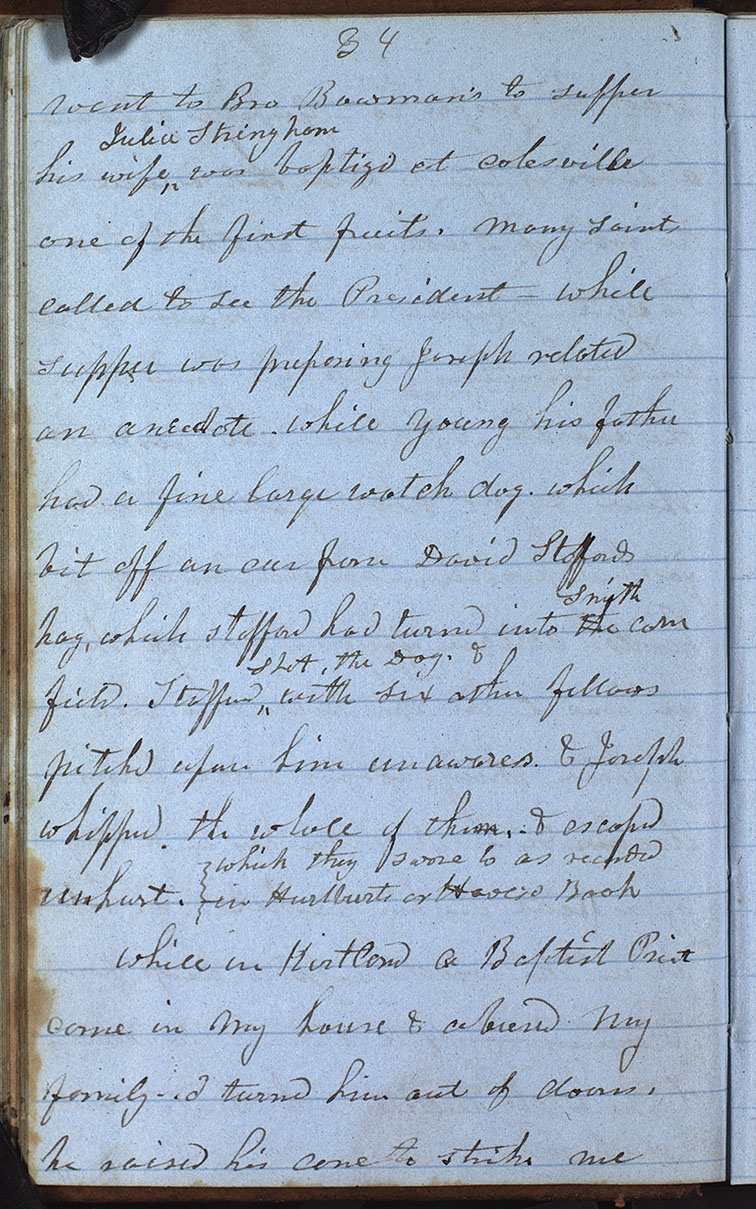 34
went to Bro Bowman's to supper
Julia Stringham
his wife was baptizd at colesville
one of the first fruits. Many saints
called to see the President - while
supper was preparing Joseph related
an anecdote. while young his father
had a fine large watch dog. which
bit off an ear from David Staffords
Smith
hog, which stafford had turnd into the corn
shot, the Dog. &
field. Stafford with six other fellows
pitchd upon him unawares. & Joseph
whippd. the whole of them. & escapd
which they swore to as recorded
unhurt. in Hurlburts or Howe's Book
while in Kirtland a Baptist Priest
come in my house & abused my
family - I turnd him out of doors,
he raised his cane to strike me